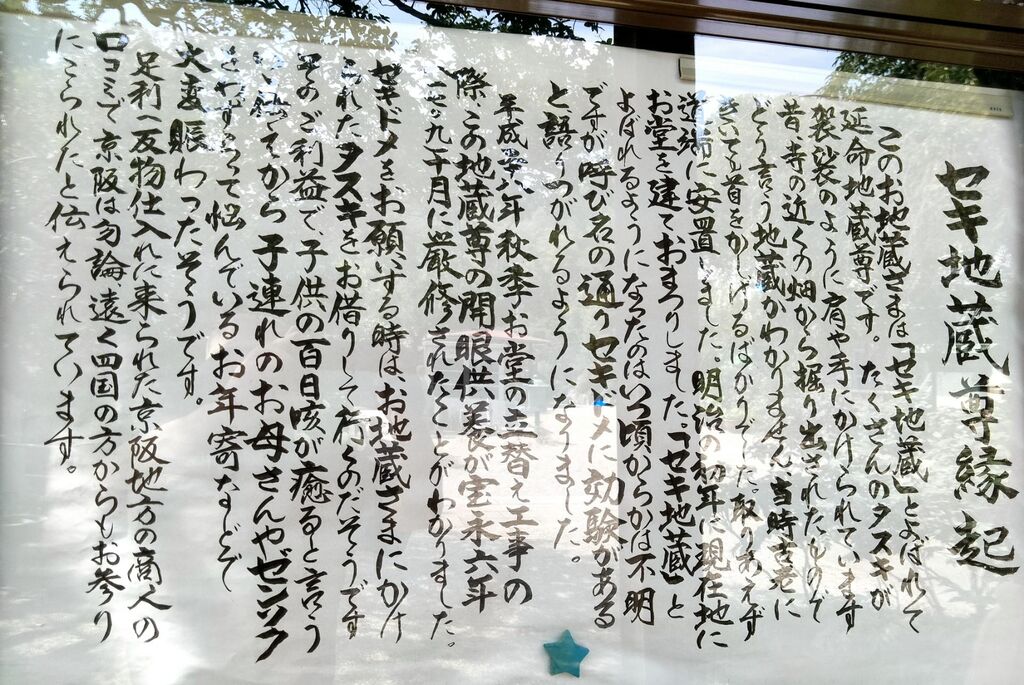 セキ地蔵尊縁起
このお地蔵さまは「セキ地蔵」とよばれて
延命地蔵尊です。たくさんのタスキが
袈裟のように肩や手にかけられています
昔、寺の近くの畑から掘り出されたもので
どう言う地蔵かわかりません、当時古老に
きいても首をかしげるばかりでした。取りあえず
道筋に安置しました。明治の初年に現在地に
お堂を建ておまつりしました。「セキ地蔵」と
よばれるようになったのはいつ頃からかは不明
ですが呼び名の通りセキドメに効験がある
と語りつがれるようになりました。
平成 八年秋季お堂の立替え工事の
際、この地蔵尊の開眼供養が宝永六年
九十月に厳修されたことがわかりました。
セキドメをお願いする時は、お地蔵さまにかけ
られたタスキをお借りして行くのだそうです
そのご利益で子供の百日咳が癒ると言う
から子連れのお母さんやゼンソク
をわずらって悩んでいるお年寄などで
大変賑わったそうです。
足利へ反物仕入れに来られた京阪地方の商人の
口コミで京阪は勿論、遠く四国の方からもお参り
にこられたと伝えられています。